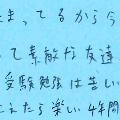 まってるから今
って素敵な友達
受験勉強は苦しい
こえたら楽しい4年間